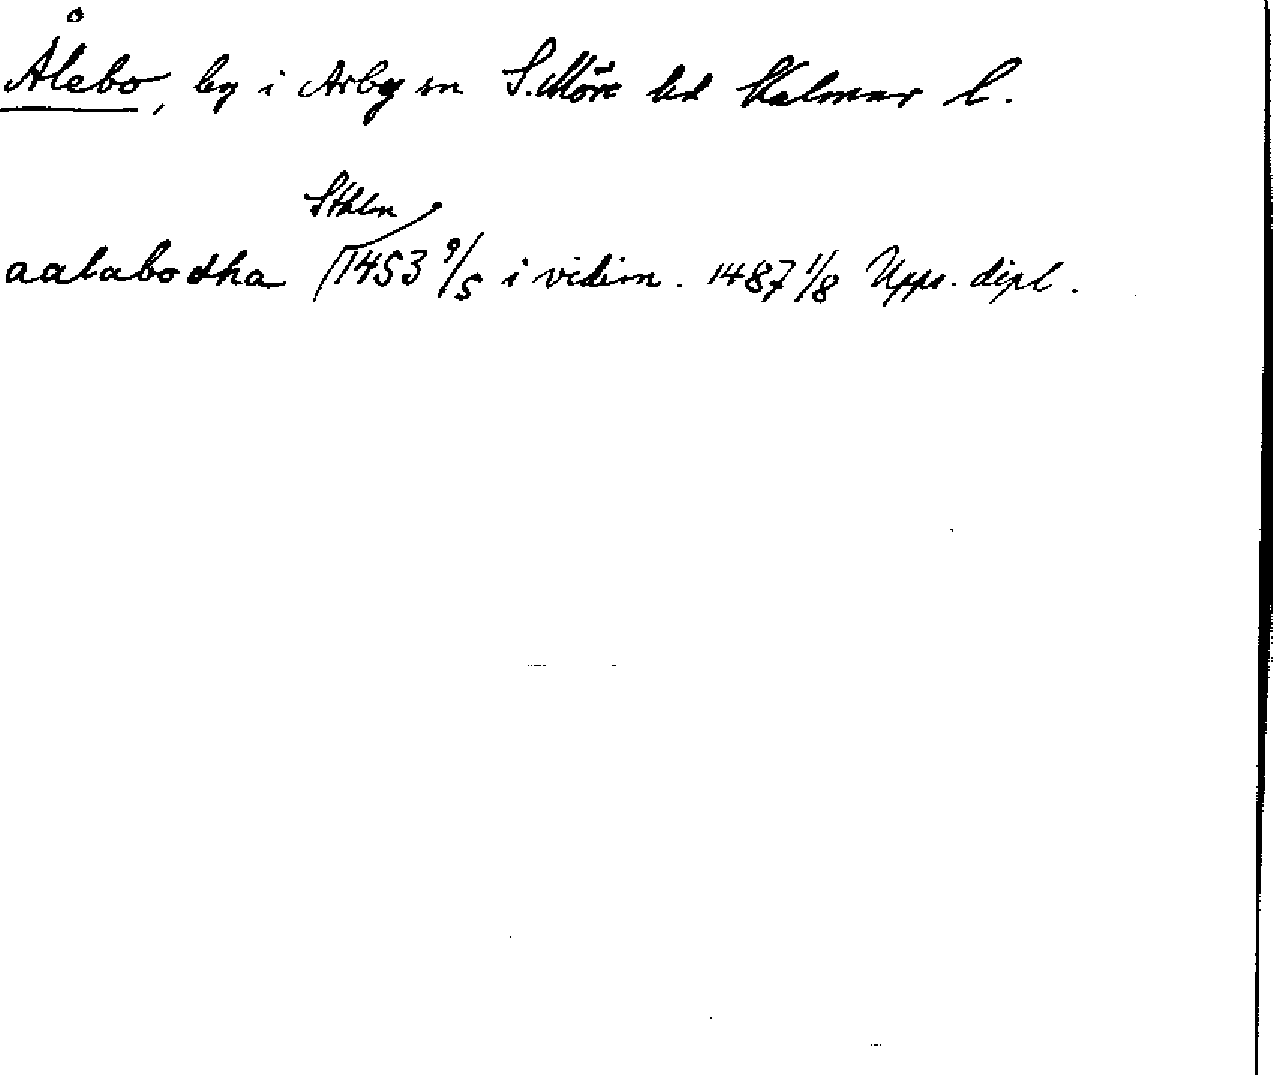 Ålebo, by i Arby sn S. Möre hd Kalmar l.
Sthlm
aalabodha 1453 9/5 i vidim. 1487 1/8 Upps. dipl.